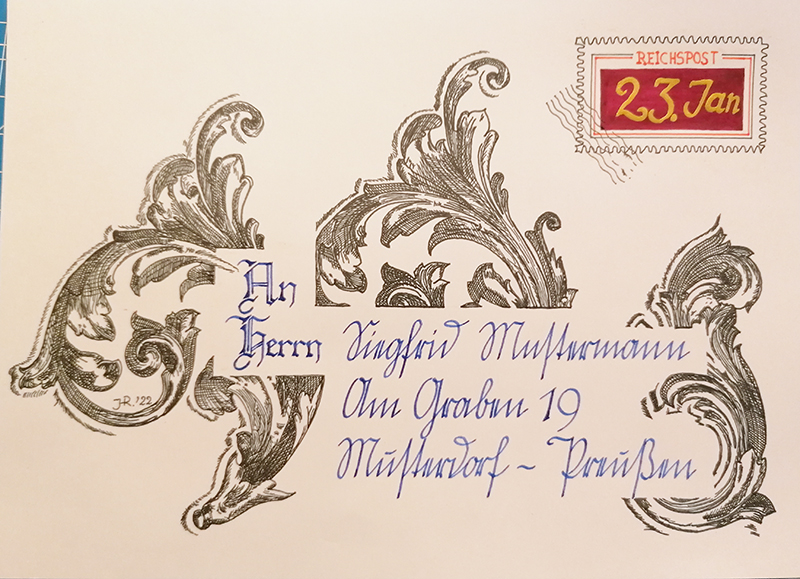 REICHSPOST
23. Jan
An
Herrn Siegfrid Mustermann
Am Graben 19
Musterdorf - Preußen
J-R. '22